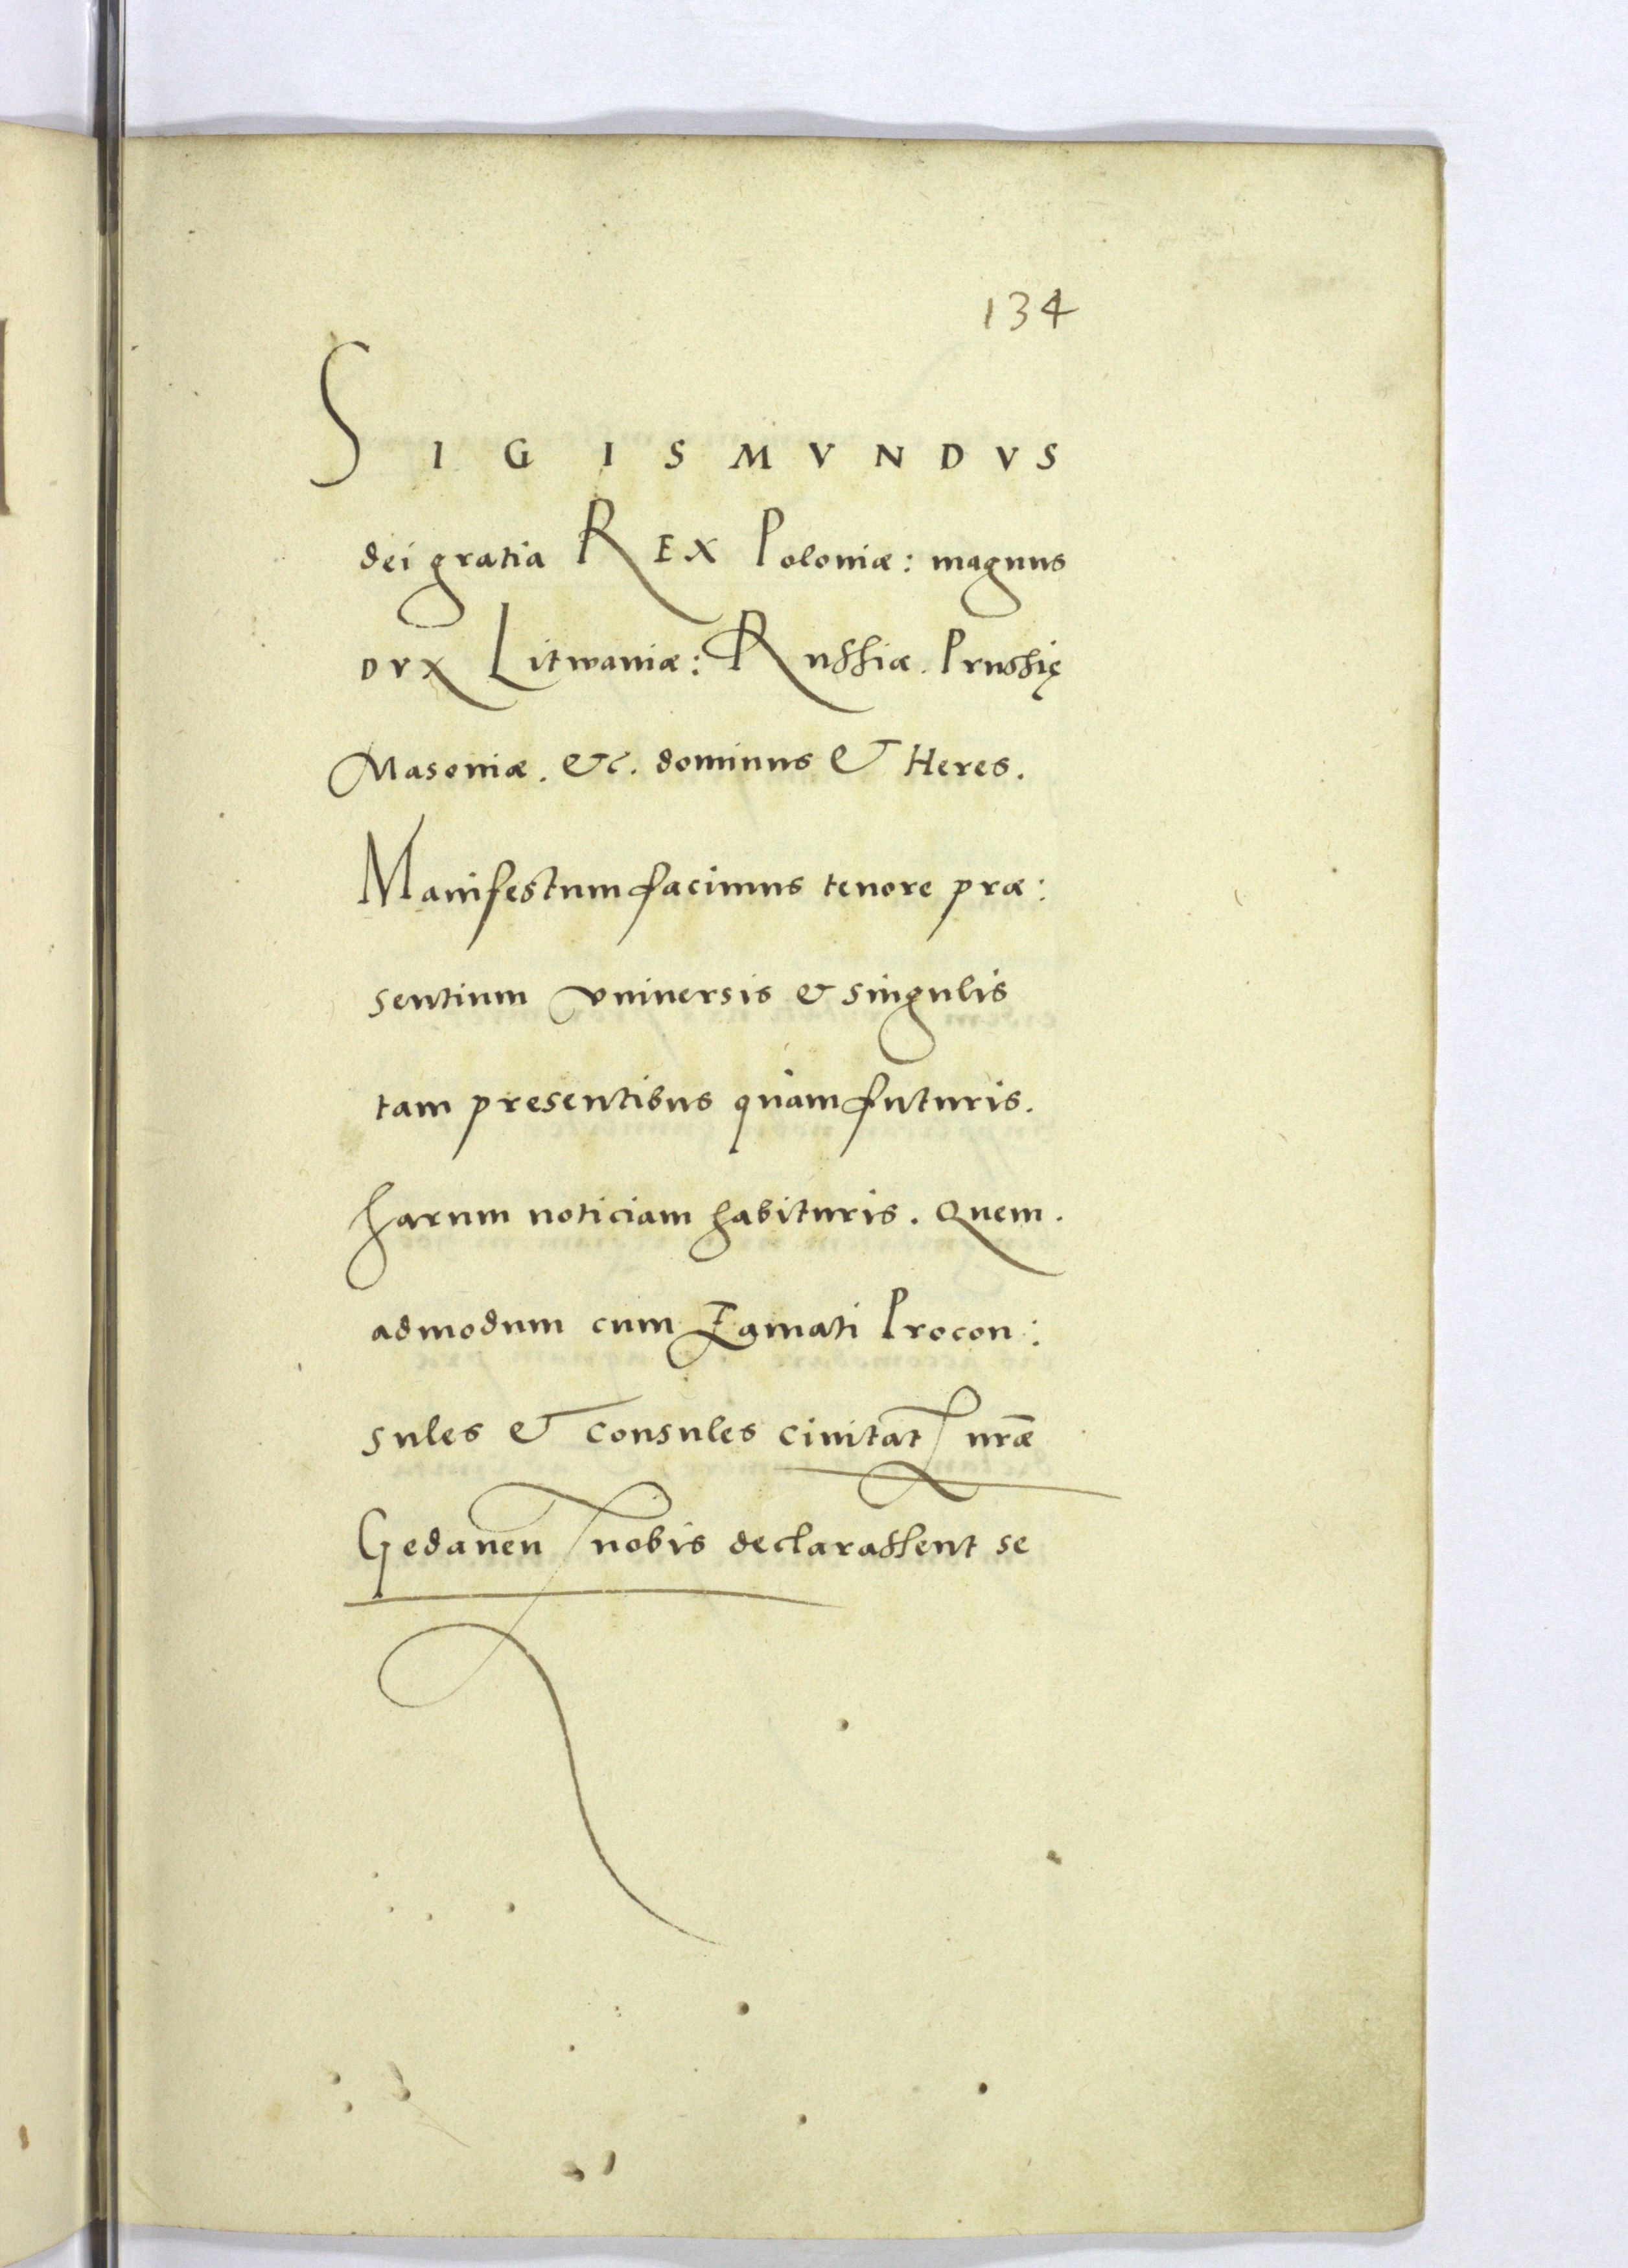 134
SIGISMVNDVS
dei gratia REX Poloniæ: magnus
DVX Litwaniæ: Russiæ. Prussię
Masoniæ. &c. dominus & Heres.
Manifestum facimus tenore præ:
sentium vniuersis & singulis
tam presentibus quàm futuris.
harum noticiam habituris. Quem.
admodum cum Famati Procon:
sules & consules ciuitat nræ
Gedanen nobis declarassent se